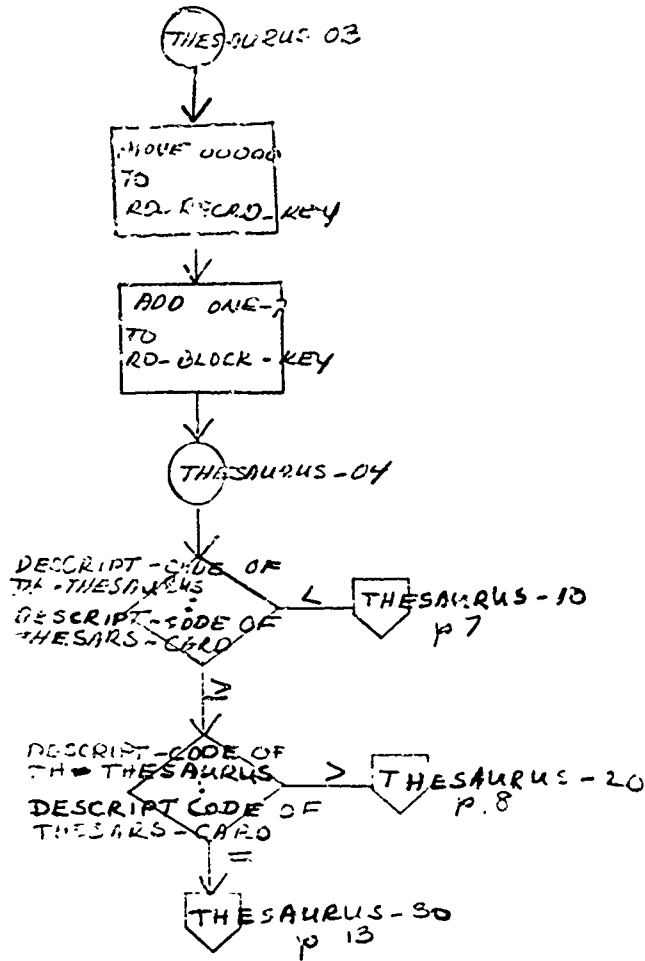 THESAURUS-03
MOVE 00000
TO
RD-RECRD-KEY
ADD ONE-
TO
RD-BLOCK-KEY
THESAURUS-04
DESCRIPT-CODE OF
TH-THESAURUS
:
DESCRIPT-CODE OF
THESARS-CARD
<
THESAURUS-10
p 7
≥
DESCRIPT-CODE OF
TH-THESAURUS
:
DESCRIPT CODE OF
THESARS-CARD
>
THESAURUS-20
p.8
=
THESAURUS-30
p 13